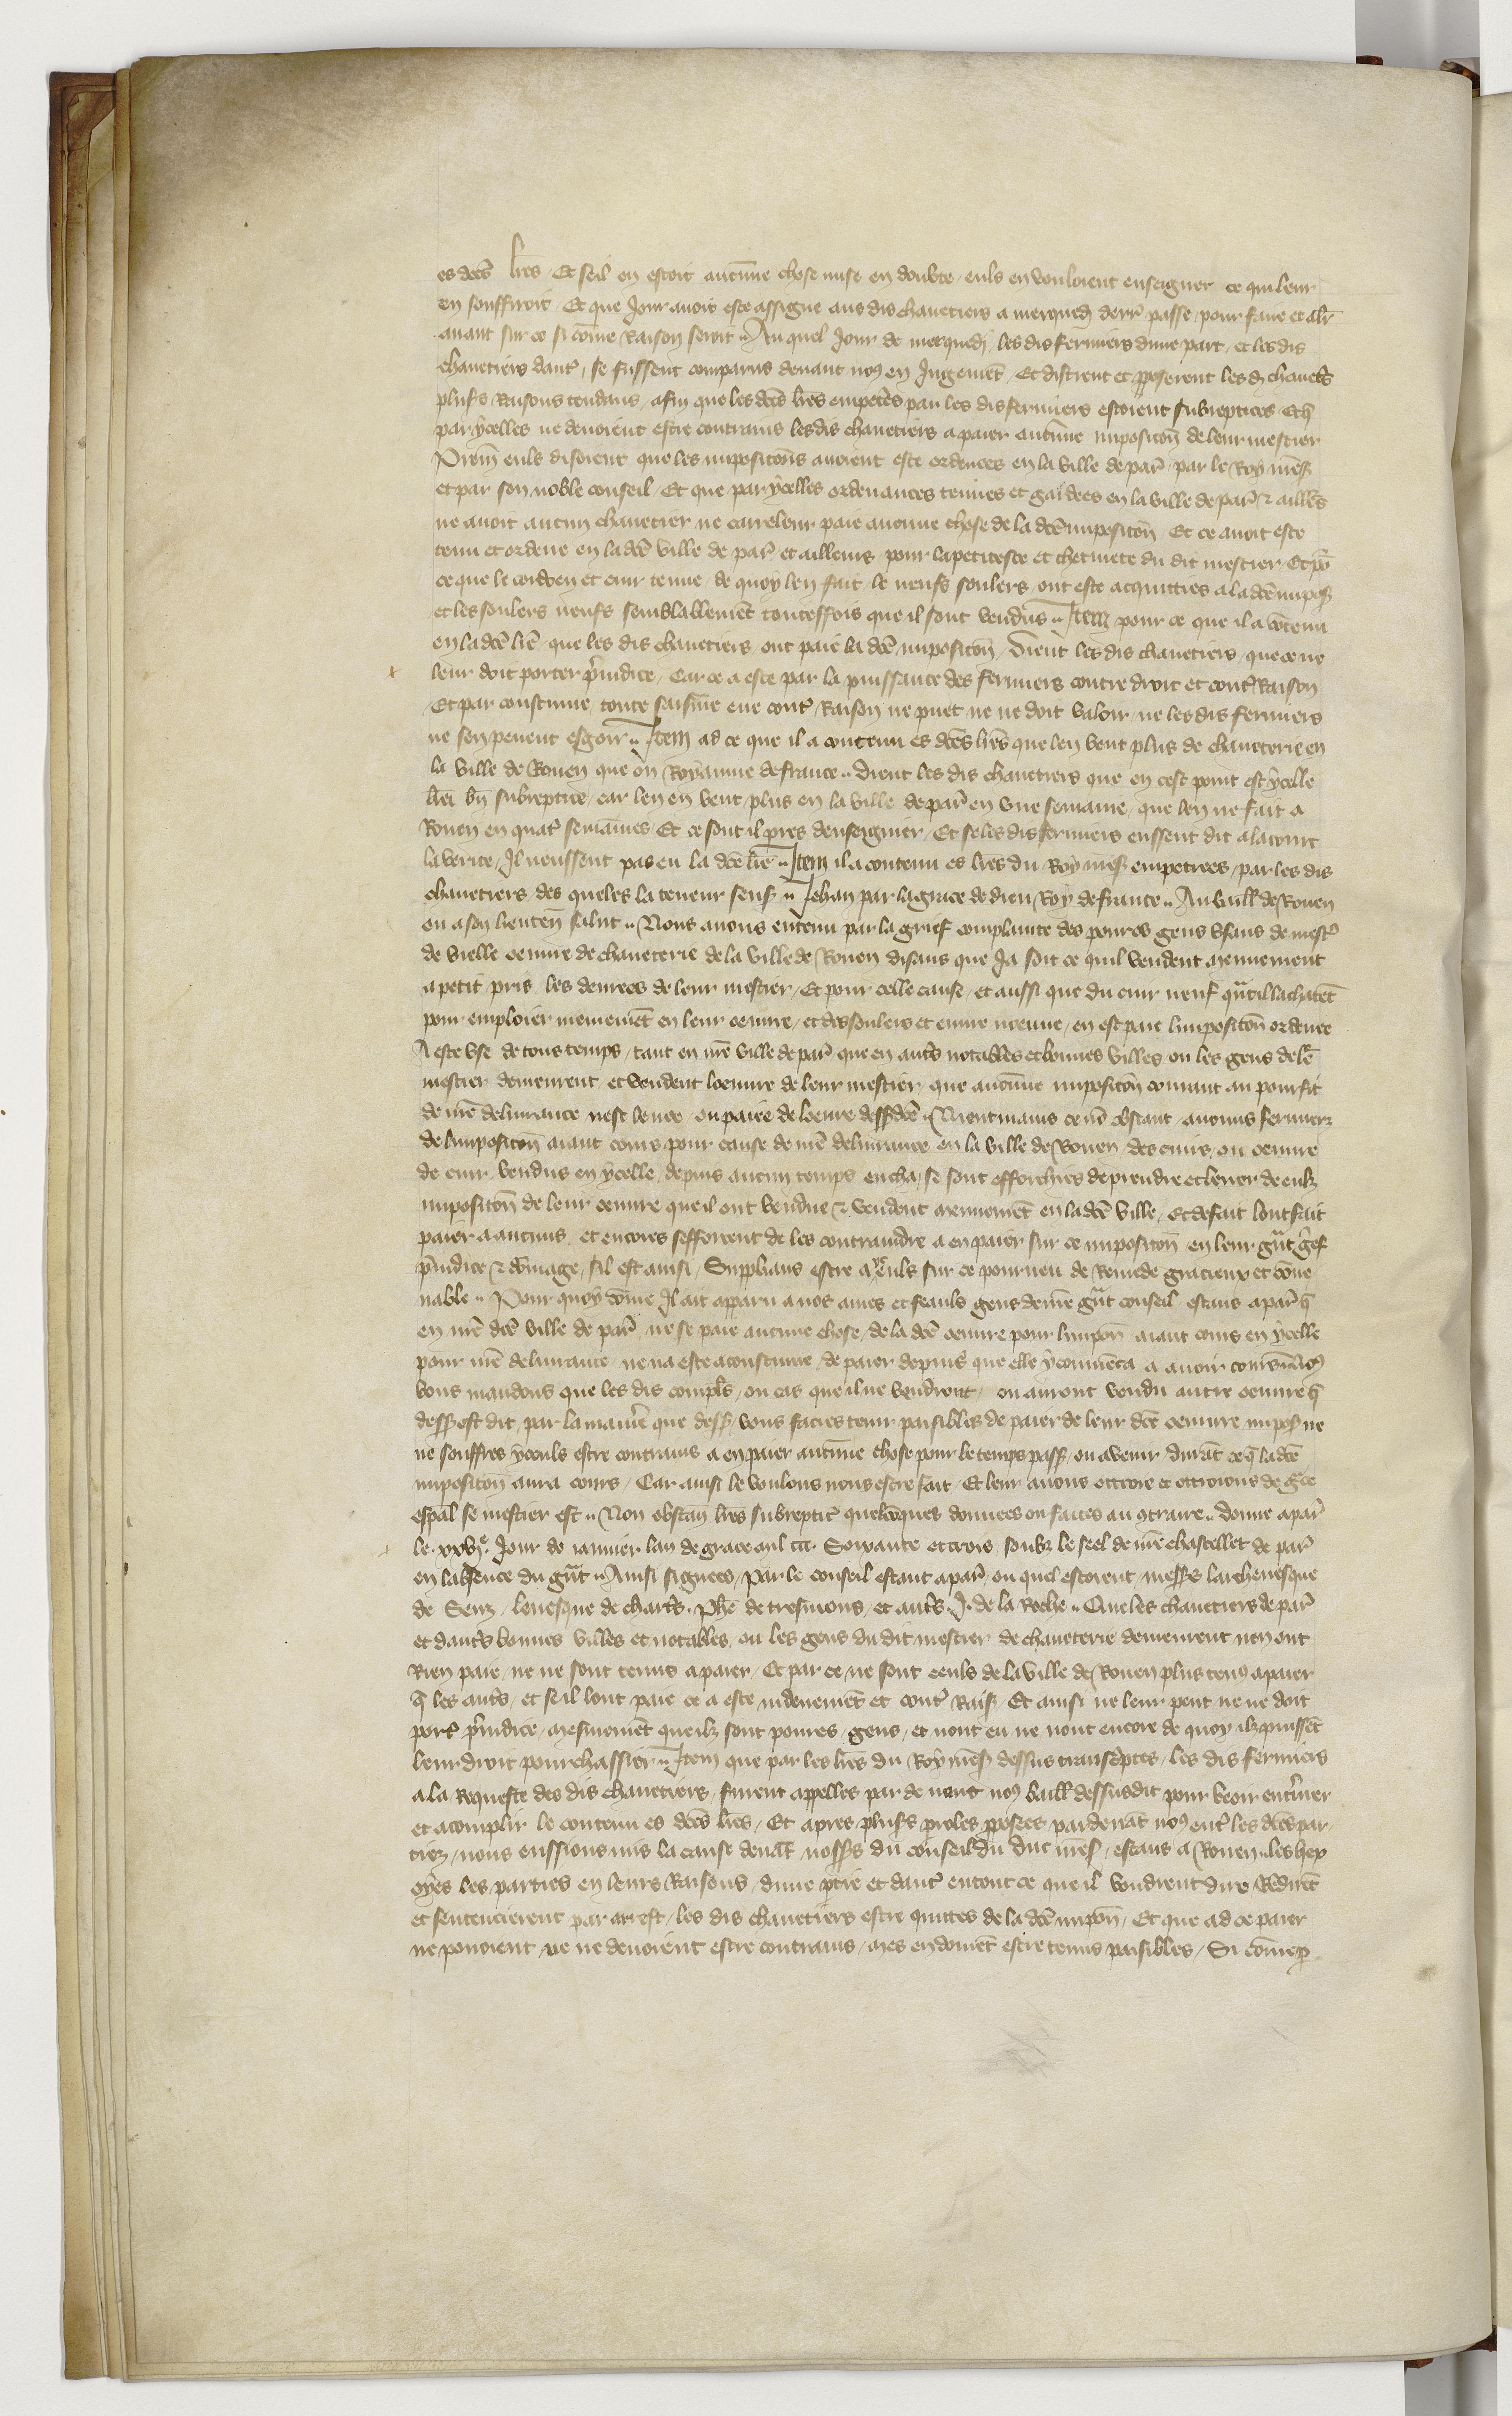 es dc̃es lr̃es / Et se il en estoit aucune chose mise en doubte / euls en vouloient enseigner ce qui leur
en souffiroit / Et que Jour avoit este assigne aus dis chavetiers a merquedj derr̃ passe / pour faire et aler
avant sur ce si cõme Raison seroit .. Au quel Jour de merquedj / les dis fermiers dune part / et les dis
chavetiers dautr̃ / se fussent comparus devant no9 en Jugemẽt / Et distrent et pposerent les d̃ chavet̃s
plus̃s Raisons tendans / afin que les dc̃es lr̃es empetr̃es par les dis fermiers estoient subreptices / Et q̃
par ycelles ne devoient estre contrains les dis chavetiers a paier aucũne imposicõn de leur mestier
Prem̃ euls disoient que les imposicõns avoient este ordenees en la ville de par̃ / par le Roy ñre s̃
et par son noble conseil / Et que par ycelles ordenances tenues et gardees en la ville de par̃ ⁊ aillr̃s
ne avoit aucun chavetier ne carreleur paie aucune chose de la dc̃e imposicõn / Et ce avoit este
tenu et ordene en la dc̃e ville de par̃ et ailleurs pour la petitesce et chetivete du dit mestier / Et p̃
ce que le cordoen et cuir tenne / de quoy len fait le neufs soulers / ont este acquitties a la dc̃e impos̃
et les soulers neufs semblablemẽt touteffois que il sont vendus .. Item pour ce que il a cõtenu
en la dc̃e lr̃e / que les dis chavetiers ont paie la dc̃e imposicõn / Dient les dis chavetiers / que ce ne
leur doit porter p̃judice / Car ce a este par la puissance des fermiers contre droit et cont̃ Raison
Et par coustume / toute saisine eue cont̃ Raison ne puet ne ne doit valoir / ne les dis fermiers
ne sen pevent esjoir .. Item ad ce que il a contenu es dc̃es lr̃es que len vent plus de chaveterie en
la ville de Rouen que ou Royaume de france .. Dient les dis chavetiers que en cest point est ycelle
lr̃e bñ subreptice / car len en vent plus en la ville de par̃ en une semaine / que len ne fait a
Rouen en quatr̃ semaines / Et ce sont il prez denseignier / Et se les dis fermiers eussent dit a la court
la verite / Il neussent pas eu la dc̃e lr̃e .. Item il a contenu es lr̃es du Roy ñre s̃ empetrees / par les dis
chavetiers des queles la teneur sens̃ .. Jehan par la grace de dieu Roy de france .. Au baill̃ de Rouen
ou a son lieuteñ salut .. Nous avons entenu par la grief complainte des povres gens usans de mest̃
de vielle oeuvre de chaveterie de la ville de Rouen disans que Ja soit ce quil vendent menuement
a petit pris les denrees de leur mestier / Et pour celle cause / et aussi que du cuir neuf qu̾il lachatẽt
pour emploier menuemẽt en leur oeuvre / et des soulers et euvre neuve / en est paie limposicõn ordenee
A este use de tous temps / tant en ñre ville de par̃ que en aut̃s notables et bonnes villes ou les gens de le̾
mestier demeurent / et vendent loeuvre de leur mestier / que aucune imposicõn courant au pourfit
de ñre delivrance nest levee ou paiee de loevre dess̃dc̃e .. Nientmains ce nõ obstant aucuns fermierz
de limposicõn aiant cours pour cause de ñre delivrance en la ville de Rouen / des cuirs / ou oeuvre
de cuir vendus en ycelle / depuis aucun temps encha / se sont efforchies de prendre et lever de eulz
imposicõn de leur oeuvre que il ont vendue ⁊ vendent menuemẽt en la dc̃e ville / Et de fait lont fait
paier a aucuns / et encores sefforcent de les contraindre a en paier sur ce imposicõn en leur gr̃at gr̃ef
p̃judice ⁊ dõmage / sil est ainsi / Supplians estre a yceuls sur ce pourveu de Remede gracieux et cõve
nable .. Pour quoy cõme Il ait apparu a nos ames et feauls gens de ñre gr̃at conseil estans a par̃ q̃
en ñre dc̃e ville de par̃ / ne se paie aucune chose / de la dc̃e oeuvre pour limpoñ aiant cours en ycelle
pour ñre delivrance / ne na este acoustume / de paier depuis que elle y commẽca a avoir cours / No9
vous mandons que les dis compl̃s / ou cas que il ne vendront / ou auront vendu autre oeuvre q̃
dess̃ est dit / par la maniẽ que dess̃ / vous facies tenir paisibles de paier de leur dc̃e oeuvre impos̃ ne
ne souffres yceuls estre contrains a en paier aucune chose pour le temps pass̃ / ou a venir / durãt ce q̃ la dc̃e
imposicõn aura cours / Car ainsi le voulons nous estre fait / Et leur avons ottroie et ottroions de gr̃ce
esp̃al se mestier est .. Non obstañ lr̃es subreptic̃ quelcõques donnees ou faictes au 9traire .. Donne a par̃
le xxvjᵉ Jour de janvier lan de grace mil ccc Soixante et trois soubz le seel de ñre chastellet de par̃
en labsence du gr̃at .. Ainsi signees / Par le conseil estant a par̃ / ou quel estoient mess̃s larchevesque
de Senz / levesque de chart̃s / Ph̃e de tresmons / et aut̃s J. de la Roche .. Que les chavetiers de par̃
et dautr̃s bonnes villes et notables / ou les gens du dit mestier de chaveterie demeurent nen ont
Rien paie / ne ne sont tenus a paier / Et par ce ne sont ceuls de la ville de Rouen plus ten9 a paier
q̃ les aut̃s / et se il lont paie ce a este indeuemẽt et cont̃ Rais̃ / Et ainsi ne leur peut ne ne doit
port̃ p̃judice / mesmemẽt que ilz sont povres gens / et nont eu ne nont encore de quoy ilz puissẽt
leur droit pourchassier .. Item que par les lr̃es du Roy ñre s̃ dessus transc̃ptes / les dis fermiers
a la Requeste des dis chavetiers / furent appelles par devant no9 baill̃ dessusdit pour veoir ent̃iner
et acomplir le contenu es dc̃es lr̃es / Et apres plus̃s proles pposees pardevãt no9 ent̃ les dc̃es par
ties / nous eussions mis la cause devãt noss̃s du conseil du duc ñre s̃ / estans a Rouen .. Les
oyes les parties en leurs Raisons / dune p̃tie et dautr̃ en tout ce que il voudrent dire Rẽdirẽt
et sentencierent par arrest / les dis chavetiers estre quittes de la dc̃e impoñ / Et que ad ce paier
ne povoient ne ne devoient estre contrains / mes en doivẽt estre tenus paisibles / Si cõme p